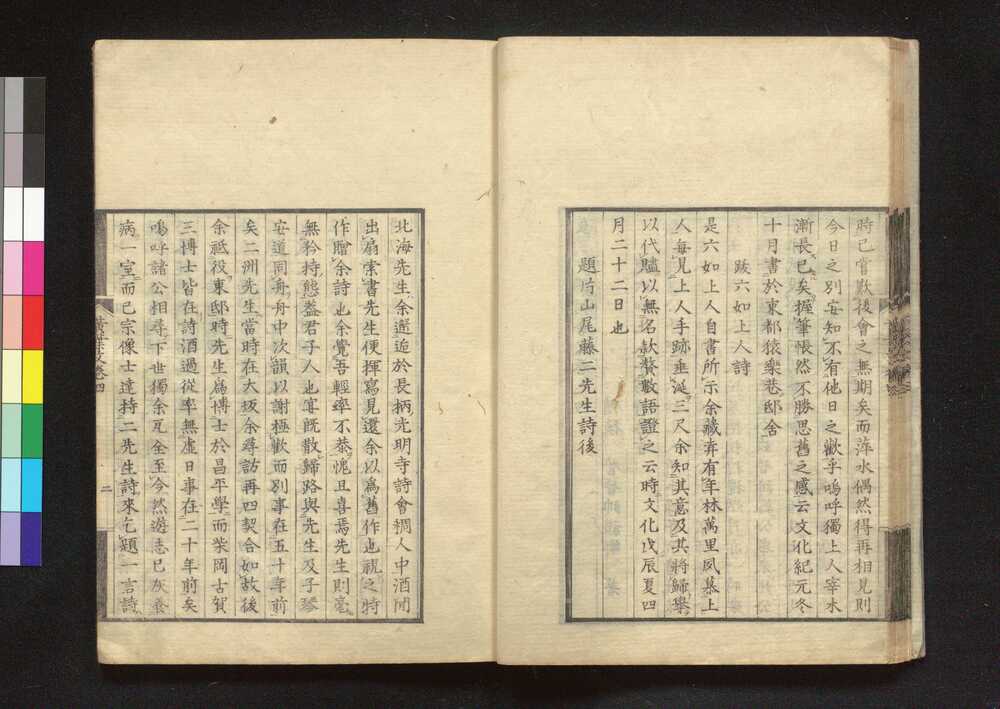 時已嘗歎後會之無期矣而萍水偶然得再相見則
今日之別安知不有他日之歡乎嗚呼獨上人宰木
漸長已矣握筆悵然不勝思舊之感云文化紀元冬
十月書於東都猿樂巷邸舍
跋六如上人詩
是六如上人自書所示余藏弆有年林萬里夙慕上
人每見上人手跡垂涎三尺余知其意及其將歸擧
以代贐以無名款贅數語證之云時文化戊辰夏四
月二十二日也
題片山尾藤二先生詩後
北海先生余邂逅於長柄光明寺詩會稠人中酒間
出扇索書先生便揮寫見還余以爲舊作也視之特
作贈余詩也余覺吾輕率不恭愧且喜焉先生則毫
無矜持態蓋君子人也宴既散歸路與先生及子琴
安道同舟舟中次韻以謝極歡而別事在五十年前
矣二洲先生當時在大坂余尋訪再四契合如故後
余祗役東邸時先生爲博士於昌平學而柴岡古賀
三博士皆在詩酒過從率無虛日事在二十年前矣
嗚呼諸公相尋下世獨余瓦全至今然遊志已灰養
病一室而已宗像士達持二先生詩來乞題一言詩
卷四
二